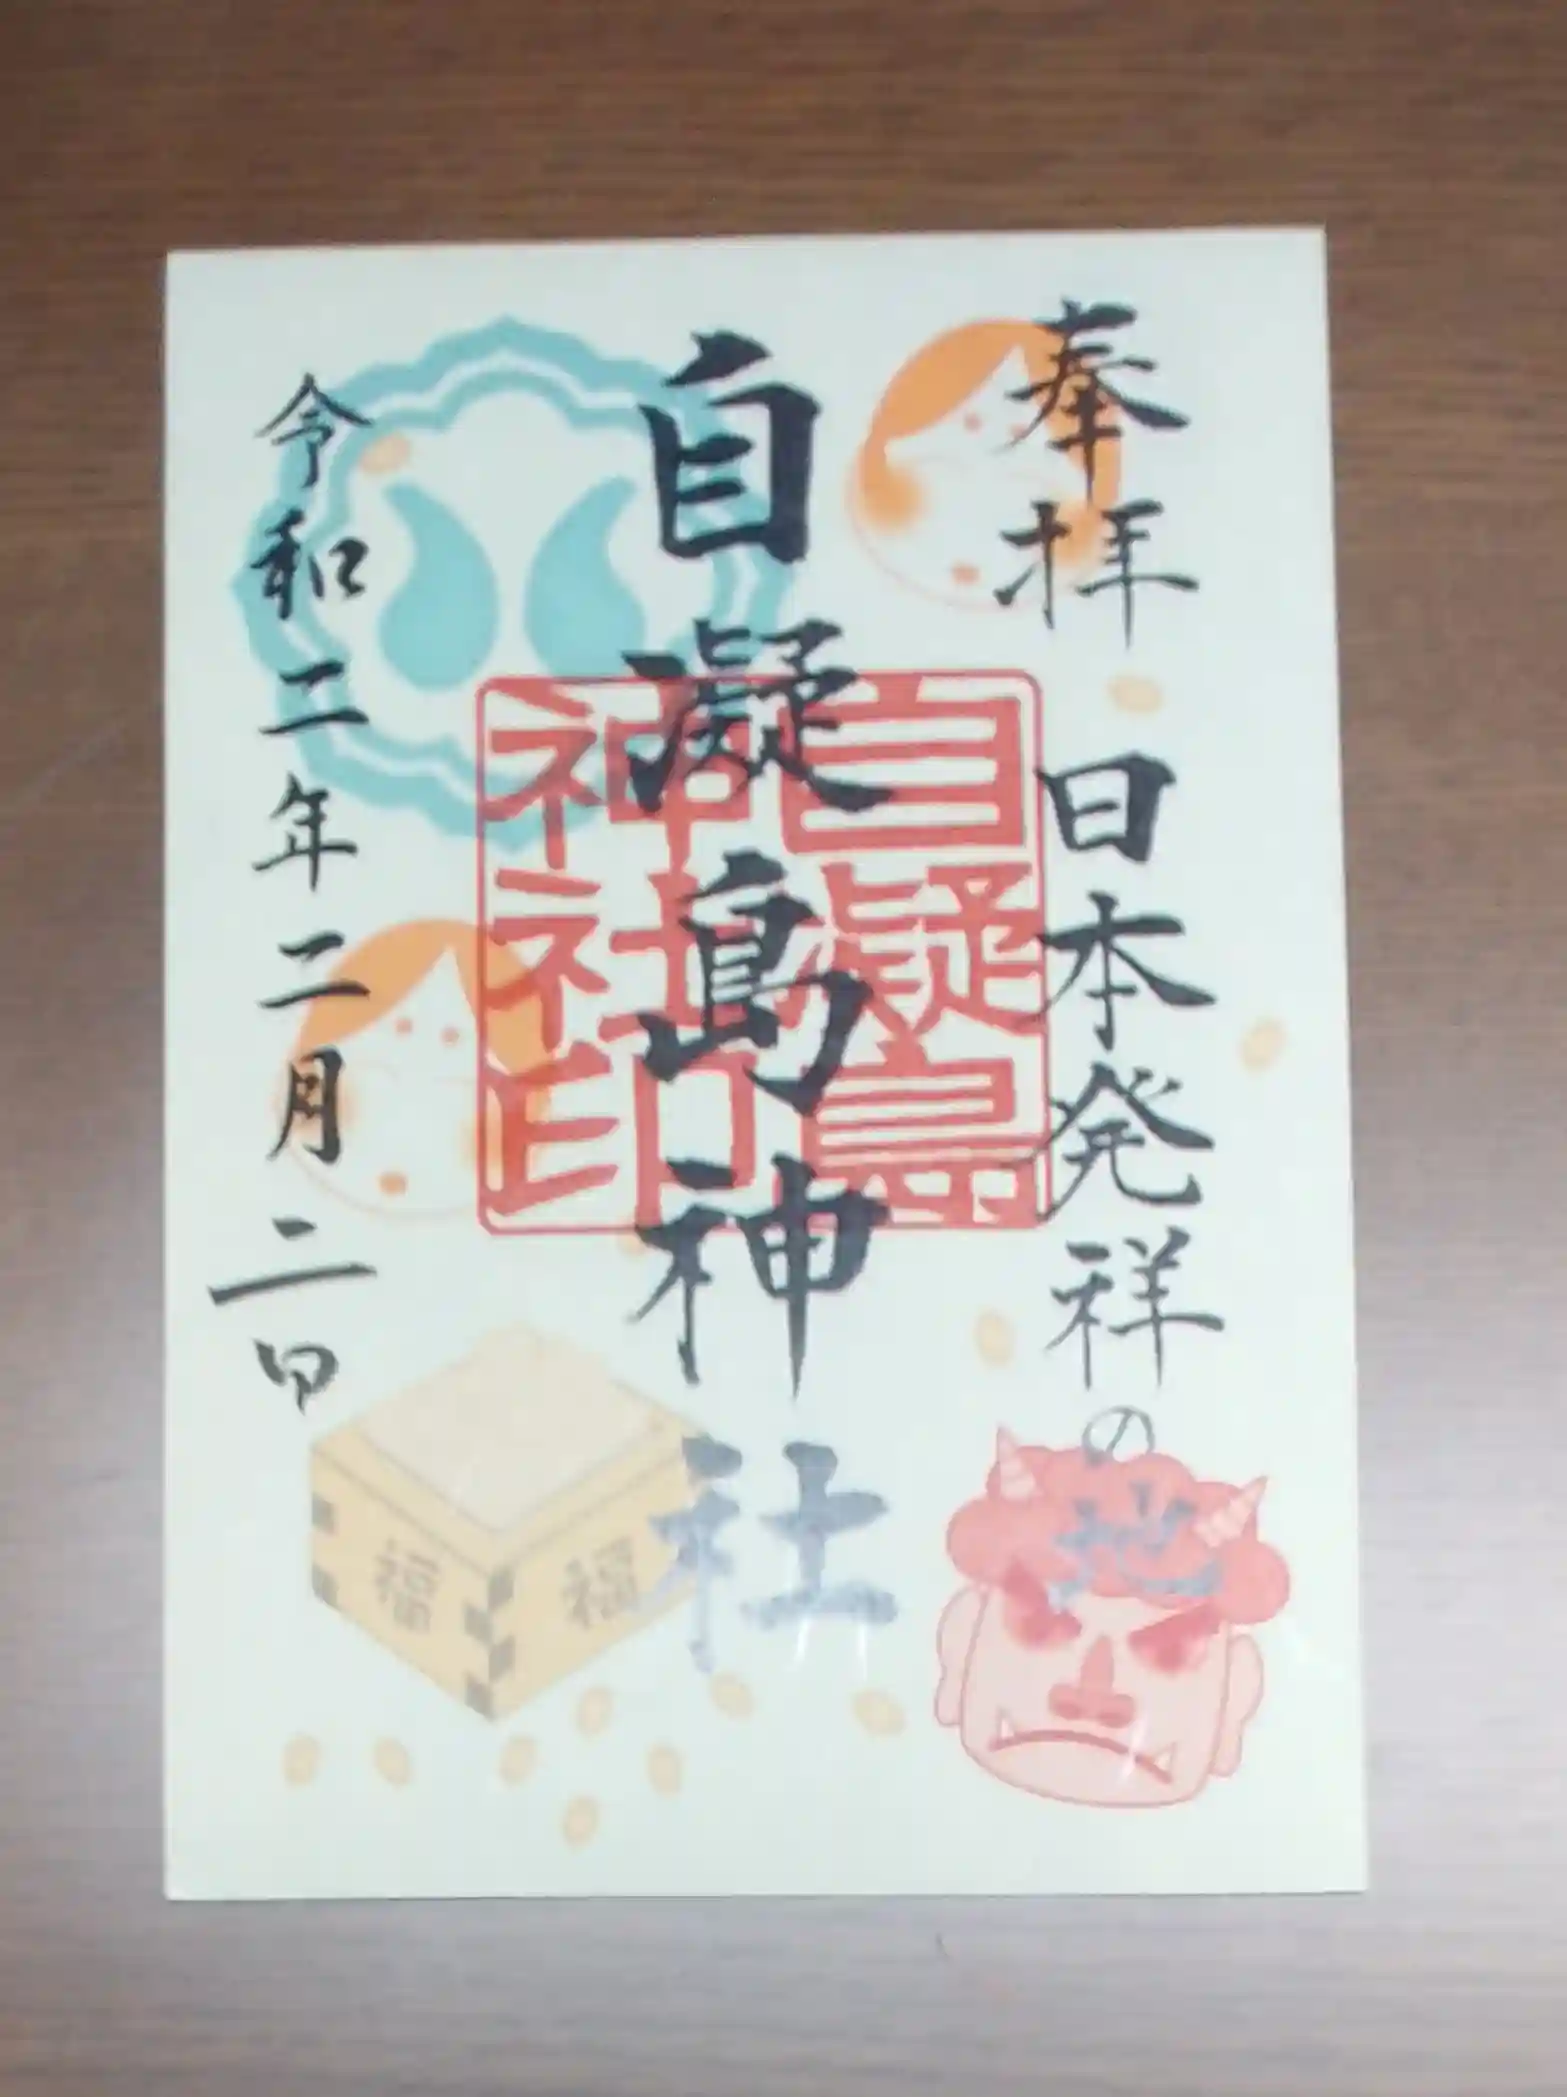 奉拝 日本発祥の地
自凝島神社
自凝島
神社印
令和二年二月二日
福
福